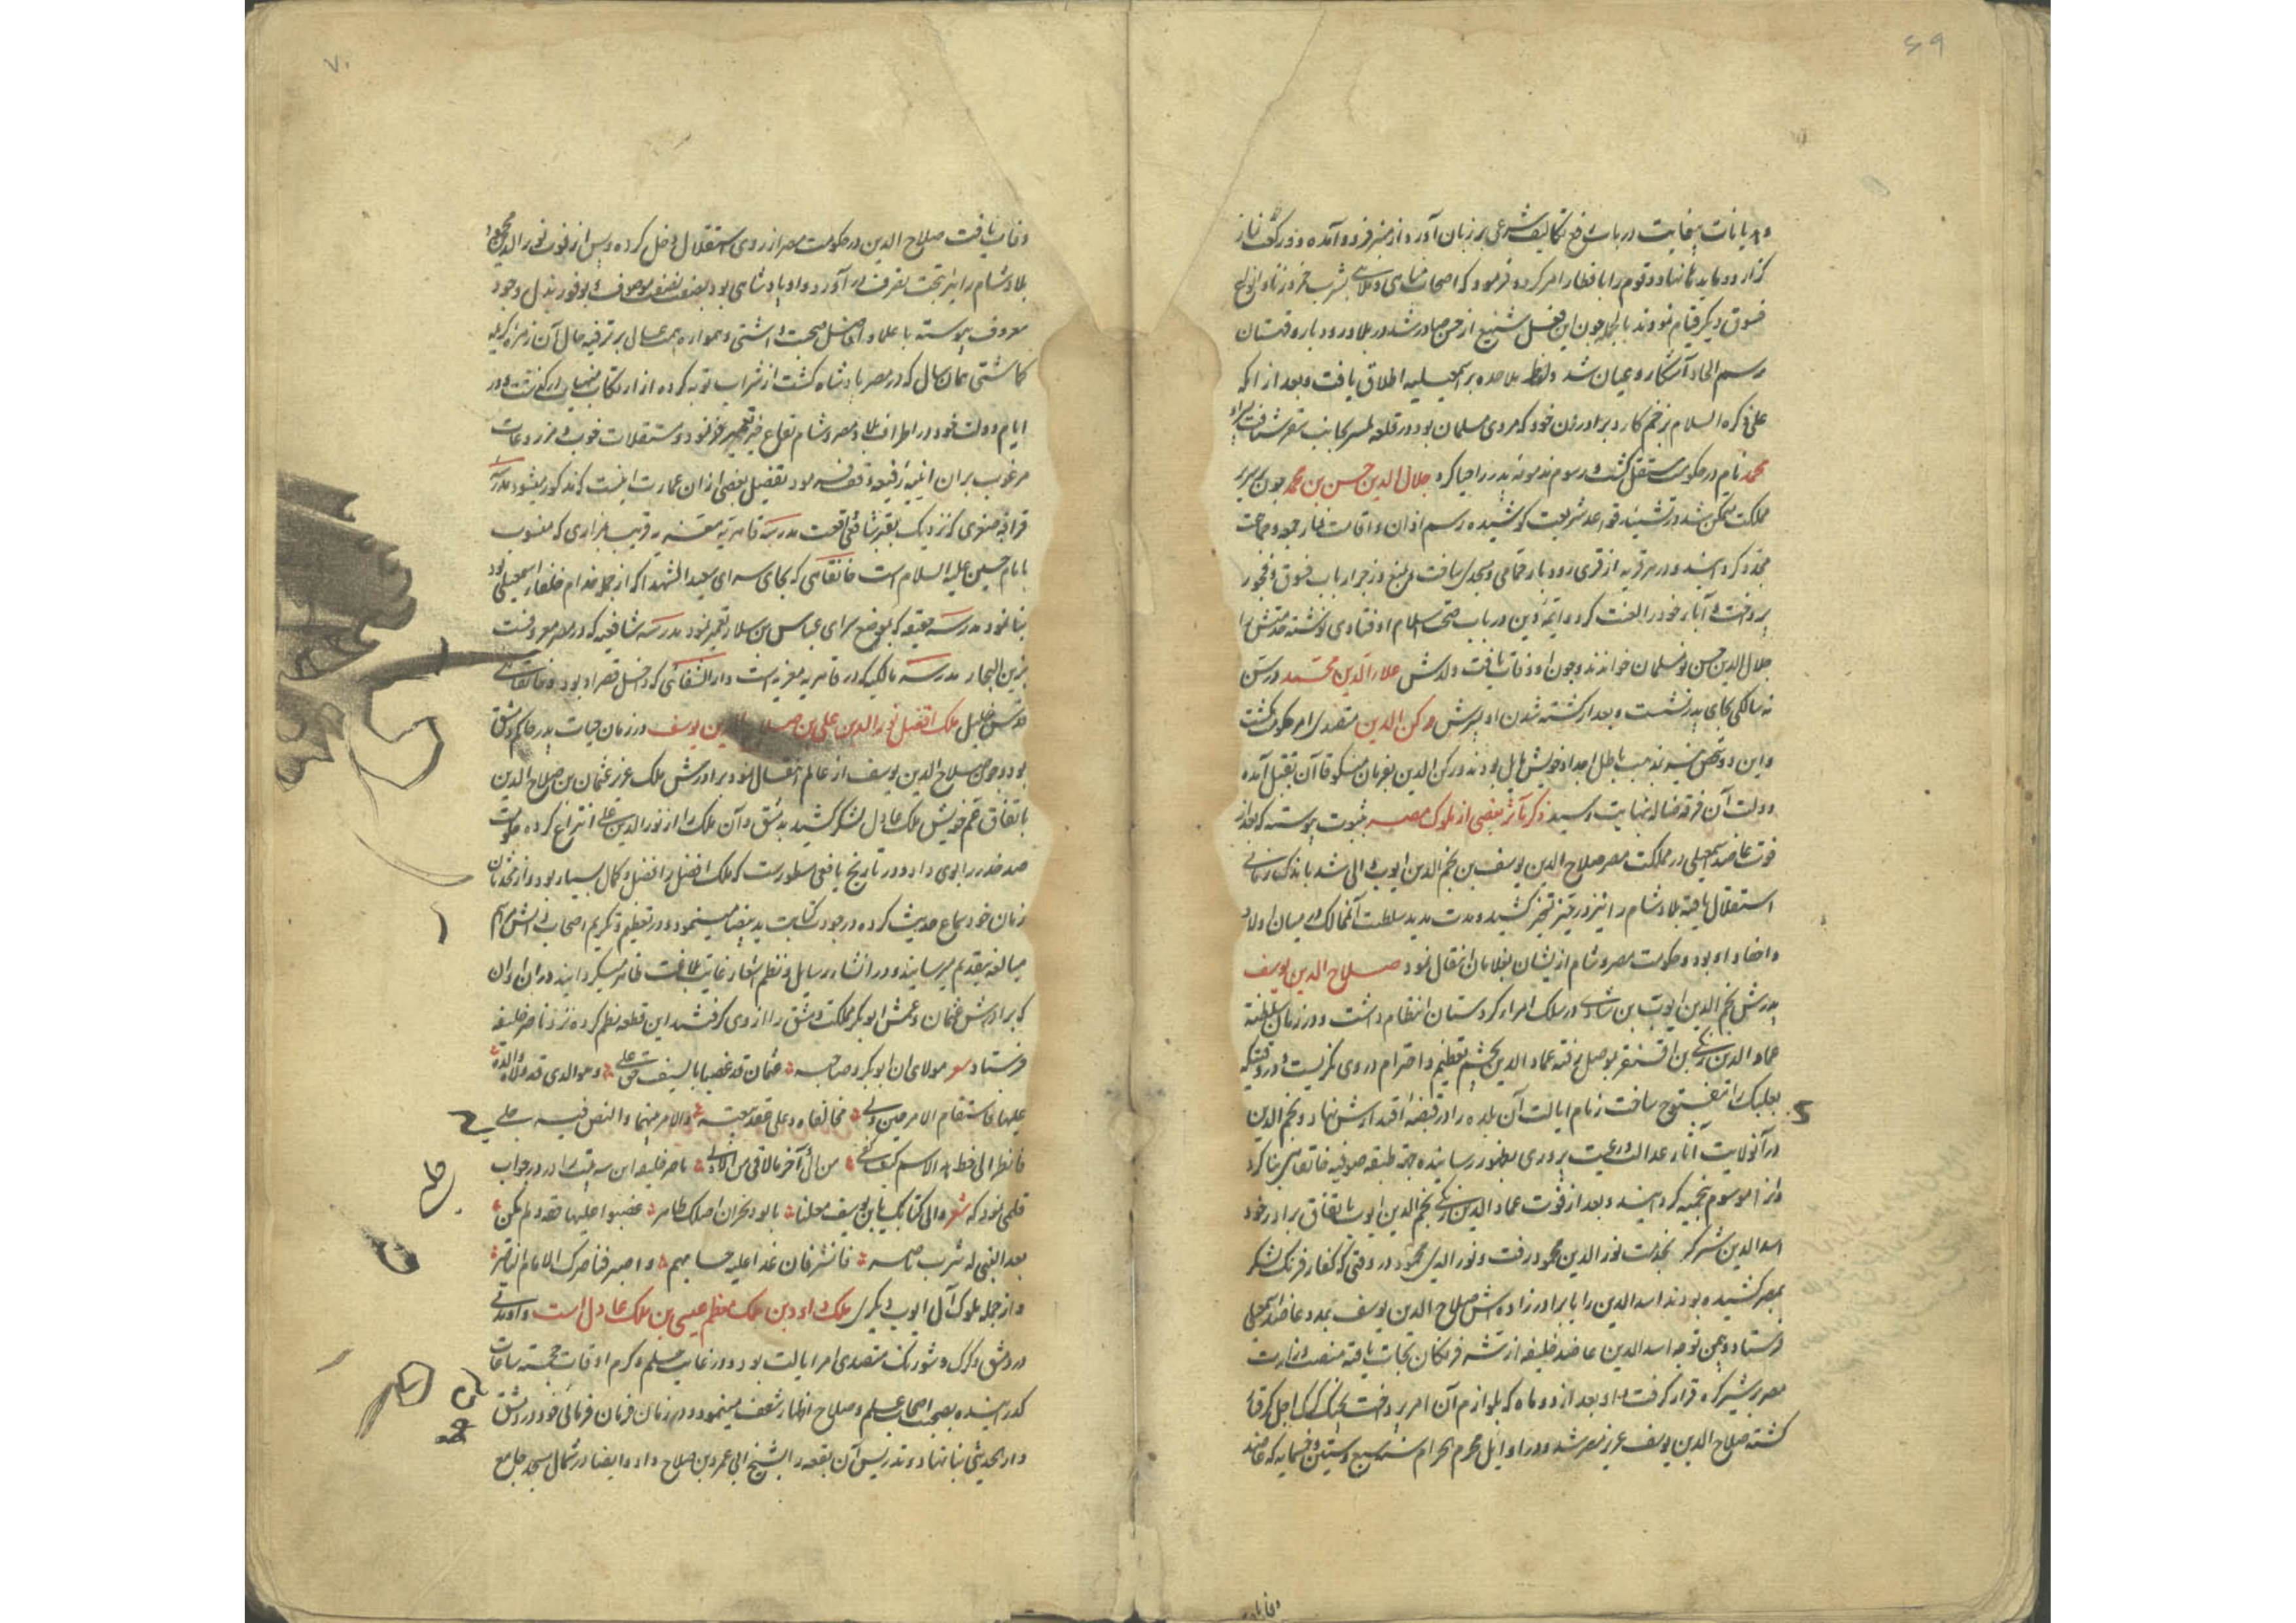 ۶۹
و هدیانات بیغایت در باب رفع تکالیف شرعی بر زبان آورد و از منبر فرود آمده دو رکعت نماز
گزارد و مایده نهاد و قوم را بافطار امر کرده فرمود که اصحاب مناهی و ملاهی بشرب خمر و زنا و انواع
فسوق دیگر قیام نمودند بالجمله چون این فعل شنیع از حسن صادر شد در بلاد رودبار و قهستان
رسم الحاد آشکار و عیان شد و لفظ ملاحده بر اسمعیلیه اطلاق یافت و بعد از آنکه
علی ذکره السلام بزخم کارد برادر زن خود که مردی مسلمان بود در قلعه لمسر بجانب سقر شتافت پسرش
محمد نام در حکومت مستقل گشت و رسوم مذمومه پدر را احیا کرد جلال الدین حسن بن محمد چون بر سریر
مملکت متمکن شد در تشیید قواعد شریعت کوشیده رسم اذان و اقامت نماز جمعه و جماعت
مجدد گردانید و در هر قریه از قری رودبار حمامی و مسجدی ساخت و بمنع و زجر ارباب فسوق و فجور
پرداخت و آباء خود را لعنت کرد و ایمه دین در باب صحت اسلام او فتاوی نوشته
جلال الدین حسن نو مسلمان خواندند و چون او وفات یافت ولدش علاء الدین محمد در سن
نه سالگی بجای پدر نشست و بعد از کشته شدن او پسرش رکن الدین متصدی امر حکومت گشت
و این دو شخص نیز بمذهب باطل اجداد خویش مایل بودند و رکن الدین بفرمان منکوقاآن بقتل آمده
دولت آن فرقه ضاله بنهایت رسید ذکر مآثر بعضی از ملوک مصر بثبوت پیوسته که بعد از
فوت عاضد اسمعیلی در مملکت مصر صلاح الدین یوسف بن نجم الدین ایوب والی شد باندک زمانی
استقلال یافته بلاد شام را نیز در حیز تسخیر کشید و مدت مدید سلطنت آن ممالک در میان اولاد
و احفاد او بود و حکومت مصر و شام از ایشان بغلامان انتقال نمود صلاح الدین یوسف
پدرش نجم الدین ایوب بن شادی در سلک امراء کردستان انتظام داشت و در زمان سلطنت
عماد الدین زنگی بن اقسنقر بموصل رفته عماد الدین بچشم تعظیم و احترام در وی نگریست و در وقتیکه
بعلبک را مفتوح ساخت زمام ایالت آن بلده را در قبضه اقتدارش نهاد و نجم الدین
در آن ولایت آثار عدالت و رعیت پروری بظهور رسانیده جهة طبقه صوفیه خانقاهی بنا کرد
و آنرا موسوم بنجمیه گردانید و بعد از فوت عماد الدین زنگی نجم الدین ایوب باتفاق برادر خود
اسد الدین شیرکوه بخدمت نور الدین محمود رفت و نور الدین محمود در وقتی که کفار فرنگ لشکر
بمصر کشیده بودند اسد الدین را با برادرزاده‌اش صلاح الدین یوسف بمدد عاضد اسمعیلی
فرستاد و بیمن توجه اسد الدین عاضد خلیفه از شر فرنگان نجات یافته منصب وزارت
مصر بر شیرکوه قرار گرفت و او بعد از دو ماه که بلوازم آن امر پرداخت بچنگ گرگ اجل گرفتار
گشته صلاح الدین یوسف عزیز مصر شد و در اوایل محرم الحرام سنه سبع و ستین و خمسمایه که عاضد
وفات
۷۰
وفات یافت صلاح الدین در حکومت مصر از روی استقلال دخل کرده و پس از فوت نور الدین محمود
بلاد شام را نیز تحت تصرف در آورد و او پادشاهی بود بصفت نصفت موصوف و بوفور بذل وجود
معروف پیوسته با علما و افاضل صحبت داشتی و همواره همت عالی بر ترفیه حال آن زمره کریمه
گماشتی همان سال که در مصر پادشاه گشت از شراب توبه کرده از ارتکاب مناهی کناره گرفت و در
ایام دولت خود در اطراف بلاد مصر و شام بقاع خیر تعمیر نمود و مستقلات خوب و مزروعات
مرغوب بران ابنیه رفیعه وقف فرمود و تفصیل بعضی از ان عمارت اینست که مذکور میشود مدرسه
قرافه صغری که نزدیک بقبر شافعی واقعست مدرسه قاهریه معزیه قریب بمزاری که منسوب
بامام حسین علیه السلام است خانقاهی که بجای سرای سعید الشهدا که از جمله خدام خلفاء اسمعیلی بود
بنا نمود مدرسه حنفیه که بموضع سرای عباس بن سلار تعمیر نمود مدرسه شافعیه که در مصر معروفست
بزین التجار مدرسه مالکیه که در قاهریه معزیه است دار الشفائی که داخل قصر او بود و خانقاهی
قدس خلیل ملک افضل نور الدین علی بن صلاح الدین یوسف در زمان حیات پدر حاکم دمشق
بود و چون صلاح الدین یوسف از عالم انتقال نمود برادرش ملک عزیز عثمان بن صلاح الدین
باتفاق عم خویش ملک عادل لشکر کشید بدمشق و آن ملک را از نور الدین علی انتزاع کرده حکومت
صرخد را بوی داد و در تاریخ یافعی مسطورست که ملک افضل را فضل و کمال بسیار بود و از محدثان
زمان خود سماع حدیث کرده در جودت کتابت ید بیضا مینمود و در تعظیم و تکریم اصحاب دانش مراسم
مبالغه بتقدیم میرسانید و در انشاء رسایل و نظم اشعار غایت بلاغت ظاهر میگردانید در ان اوان
که برادرش عثمان و عمش ابوبکر مملکت دمشق را از وی گرفتند این قطعه نظم کرده نزد ناصر خلیفه
فرستاد شعر مولای ان ابوبکر و صاحبه عثمان قد غصبا بالسیف حق علی و هو الذی قد ولاه والده
علیهما فاستقام الامر حین ولی فخالفاه و حلا عقد بیعته والامر بینهما والنص فیه جلی
فانظر الی خط هذا الاسم کیف لقی من الاواخر مالاقی من الاول ناصر خلیفه این سه بیت را در جواب
قلمی نمود که شعر وافی کتابک یابن یوسف معلنا بالود یخبر ان اصلک طاهر غصبوا علیا حقه و لم یکن
بعد النبی له بیثرب ناصر فابشر فان غدا علیه حسابهم واصبر فناصرک الامام الناصر
و از جمله ملوک آل ایوب دیگری ملک داود بن ملک معظم عیسی بن ملک عادل است و او مدتی
در دمشق و کرک و شوبک متصدی امر ایالت بود و در غایت حلم و کرم اوقات خجسته ساعات
گذرانیده بصحبت اصحاب علم و صلاح اظهار شعف مینمود و در زمان فرمان فرمائی خود در دمشق
دار الحدیثی بنا نهاد و تدریس آن بقعه را بشیخ ابی عمرو بن صلاح داد و ایضا در شمال مسجد جامع